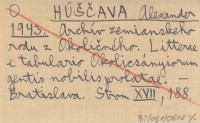 HÚŠČAVA Alexander
1943. Archív zemianskeho
rodu z Okoličného. Litterae
e tabulario Okolicsányiorum
gentis nobilis prolatae. –
Bratislava. Strom XVII, 188.